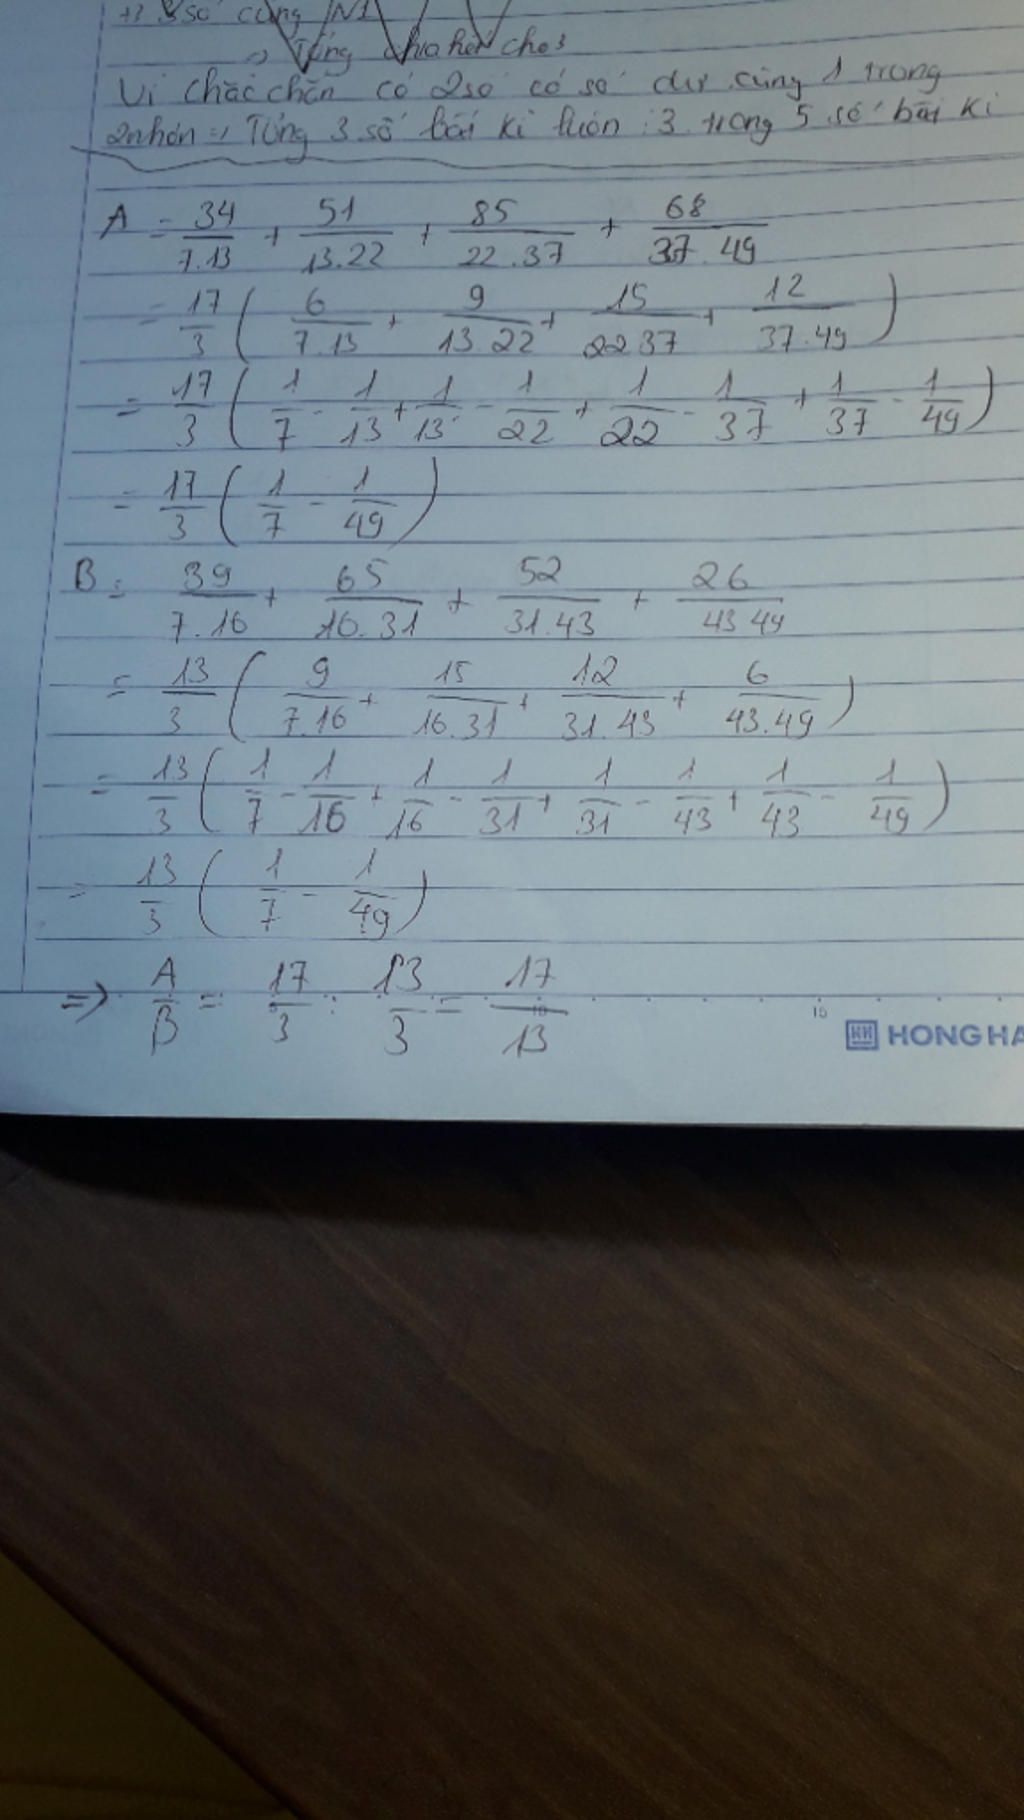 +3 số cùng N1
=> Tổng chia hết cho 3
Vì chắc chắn có 2 số có số dư cùng 1 trong
2 nhón => Tổng 3 số bất kì luôn : 3 trong 5 số bất kì
A = 34/7.13 + 51/13.22 + 85/22.37 + 68/37.49
= 17/3 ( 6/7.13 + 9/13.22 + 15/22.37 + 12/37.49 )
= 17/3 ( 1/7 - 1/13 + 1/13 - 1/22 + 1/22 - 1/37 + 1/37 - 1/49 )
= 17/3 ( 1/7 - 1/49 )
B = 39/7.16 + 65/16.31 + 52/31.43 + 26/43.49
= 13/3 ( 9/7.16 + 15/16.31 + 12/31.43 + 6/43.49 )
= 13/3 ( 1/7 - 1/16 + 1/16 - 1/31 + 1/31 - 1/43 + 1/43 - 1/49 )
= 13/3 ( 1/7 - 1/49 )
=> A/B = 17/3 : 13/3 = 17/13
5 10 15
HONG HA